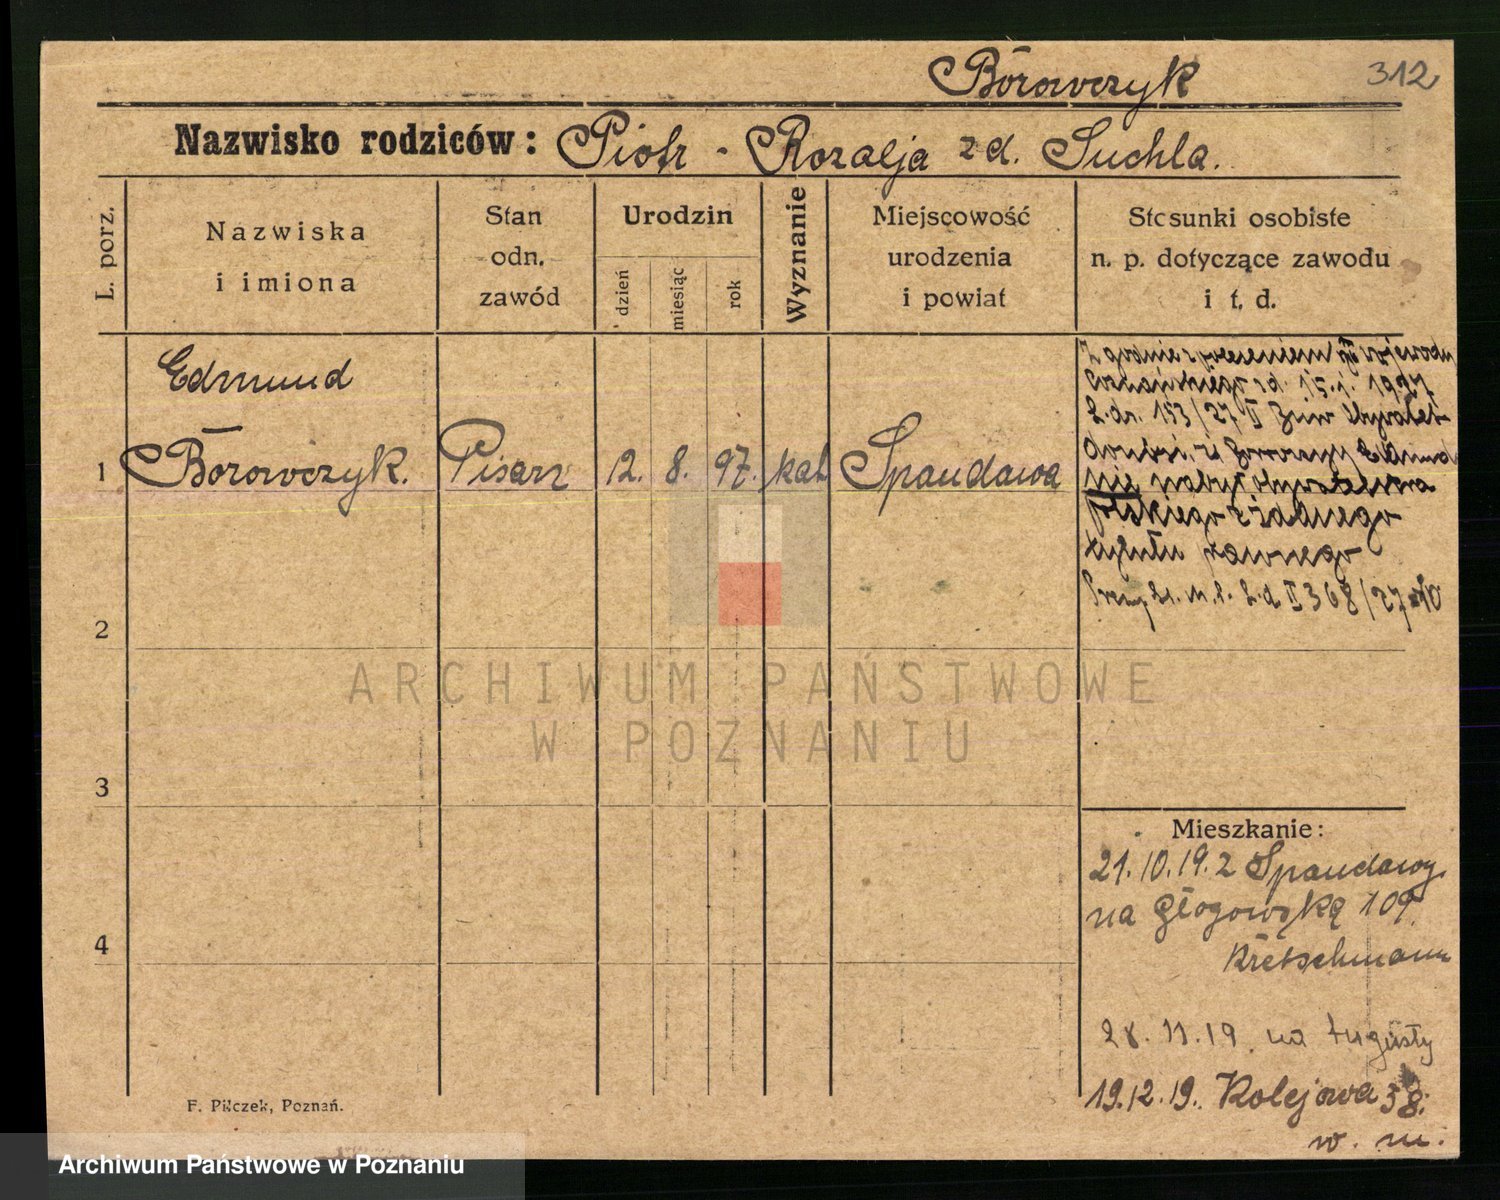 Borowczyk 312
Nazwisko rodziców: Piotr - Rozalja z d. Suchla.
L. porz.
Nazwiska
i imiona
Stan
odn.
zawód
Urodzin
dzień
miesiąc
rok
Wyznanie
Miejscowość
urodzenia
i powiat
Stosunki osobiste
n. p. dotyczące zawodu
i t. d.
Edmund
1 Borowczyk. Pisarz 12. 8. 97. kat Spandawa
Zgodnie z orzeczeniem wojewody
Poznańskiego z d. 15.1. 1927
L.dz. 153/27 II
Edmund
nie nabył obywatelstwa
polskiego z żadnego
tytułu prawnego
L.d II 368/27
2
3
4
Mieszkanie:
21.10.19. z Spandawy
na Głogowską 109.
Kretschmann
28.11.19. na
19.12.19. Kolejowa 38.
w. m.
F. Pilczek, Poznań.
ARCHIWUM PAŃSTWOWE
W POZNANIU
Archiwum Państwowe w Poznaniu